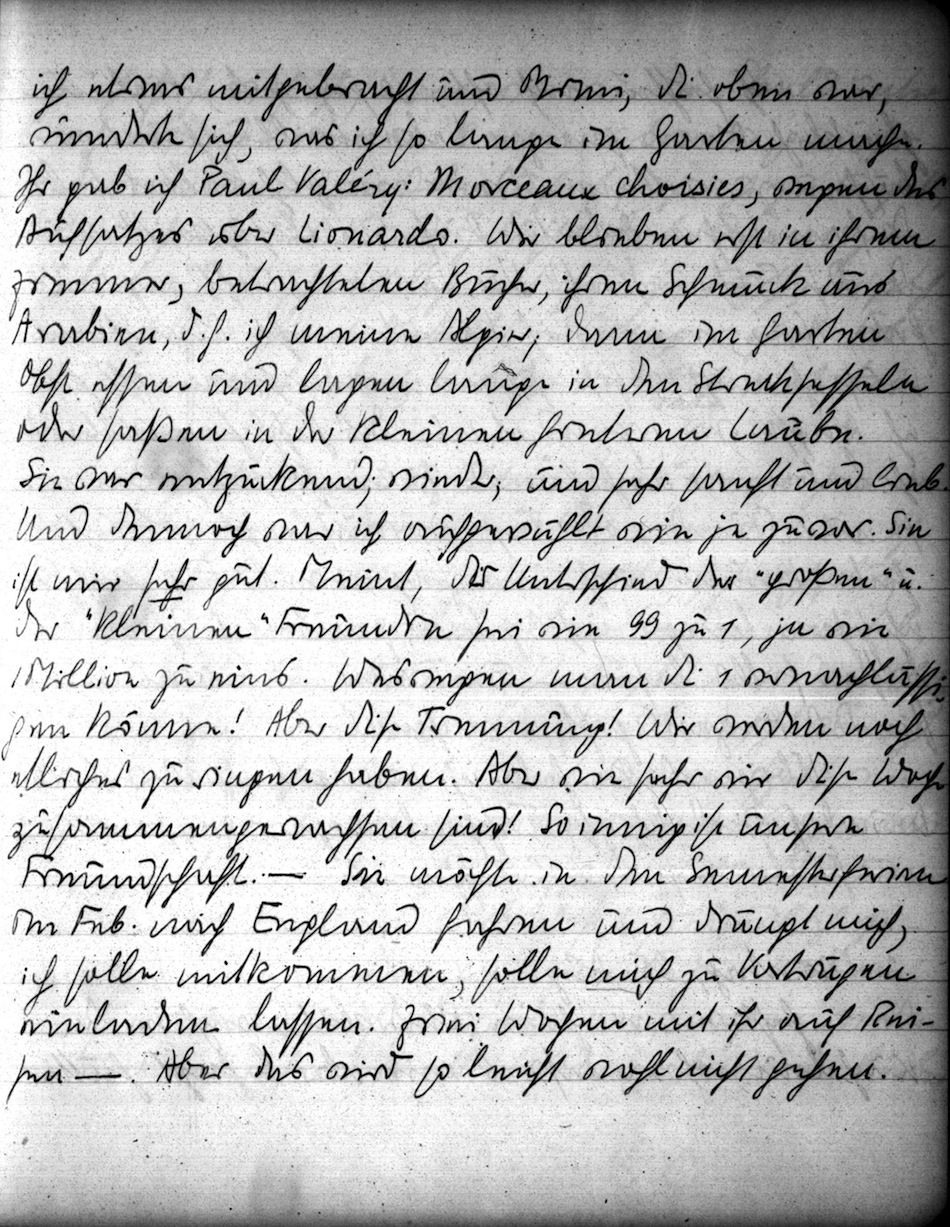 ich etwas mitgebracht und Romi, die oben war,
wunderte sich, was ich so lange im Garten mache.
Ihr gab ich Paul Valéry: Morceaux choisies, wegen des
Aufsatzes über Lionardo. Wir blieben erst in ihrem
Zimmer, betrachteten Bücher, ihren Schmuck aus
Arabien, d.h. ich meine Algier; dann im Garten
Obst essen und lagen lange in den Streckfesseln
oder saßen in der kleinen hinteren Laube.
Sie war entzückend, wieder, und sehr sanft und lieb.
Und dennoch war ich aufgewühlt wie je zuvor. Sie
ist mir sehr gut. Meint, der Unterschied der "großen" u.
der "kleinen" Freunden sei wie 99 zu 1, ja wie
1 Million zu eins. Weswegen man die 1 vernachlässi-
gen könne! Aber diese Trennung! Wir werden noch
etliches zu ringen haben. Aber wie sehr wir diese Woche
zusammengewachsen sind! So innig ist unsere
Freundschaft. — Sie möchte in den Semesterferien
im Feb. nach England fahren und drängt mich,
ich solle mitkommen, solle mich zu Vorträgen
einladen lassen. Zwei Wochen mit ihr auf Rei-
sen —. Aber das wird so leicht wohl nicht gehen.